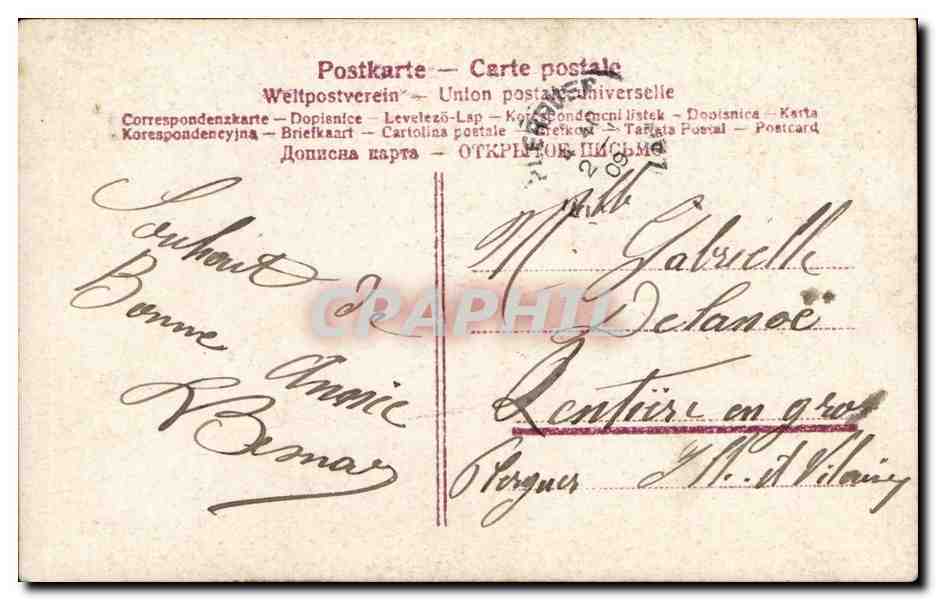 Postkarte — Carte postale
Weltpostverein - Union postale universelle
Correspondenzkarte – Dopisnice – Levelező-Lap – Korespondencni listek – Dopisnica – Karta
Korespondencyjna – Briefkaart – Cartolina postale – Brefkort – Tarjeta Postal – Postcard
Дописна карта – ОТКРЫТОЕ ПИСЬМО
2
09
Souhait de
Bonne
Année
Mlle Gabrielle
Delanoë
Rentière en gros
Plerguer Ille et Vilaine
CPAPHIL